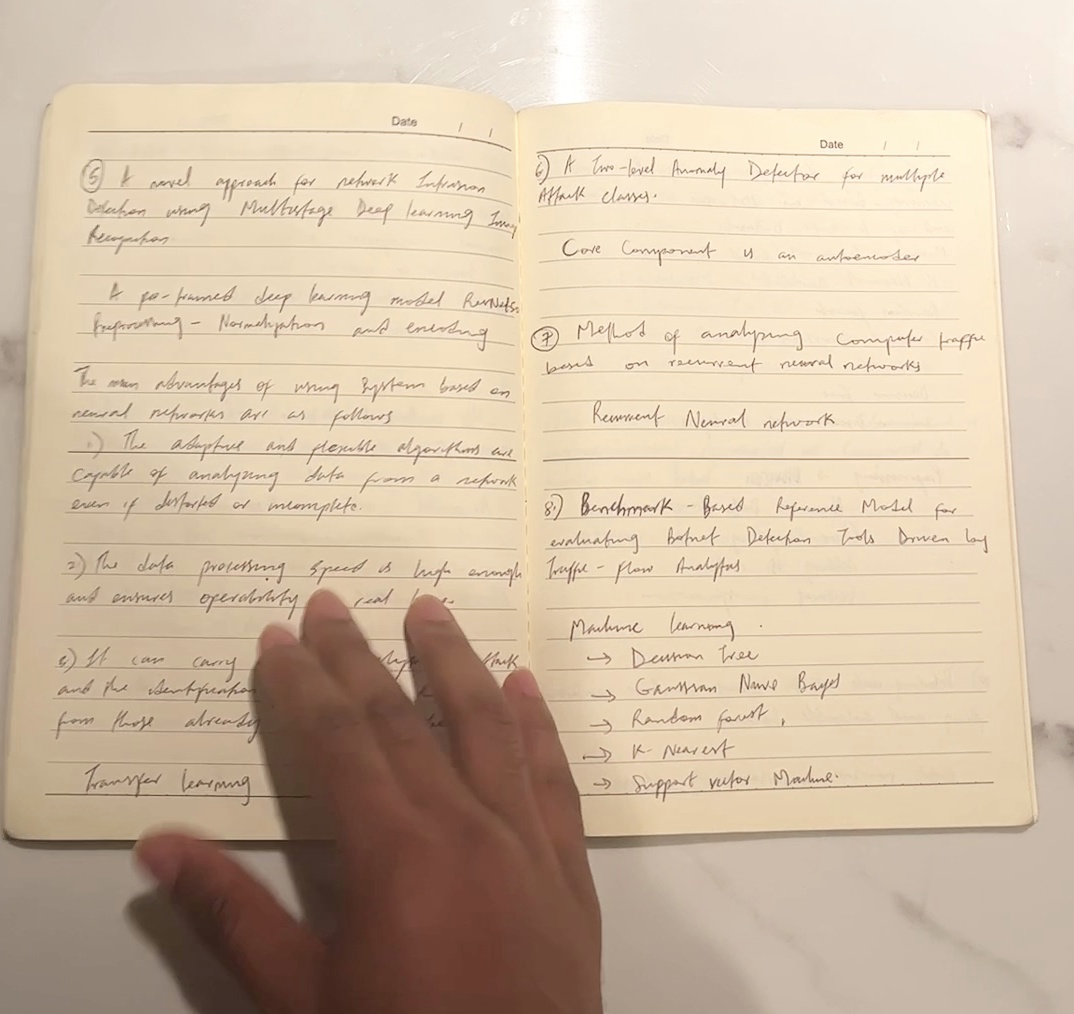 Date / /
⑤ A novel approach for network Intrusion
Detection using Multistage Deep learning Image
Recognition.
A pre-trained deep learning model ResNets
Preprocessing - Normalization and encoding
The main advantages of using system based on
neural networks are as follows
1.) The adaptive and flexible algorithms are
capable of analyzing data from a network
even if distorted or incomplete.
2.) The data processing speed is high enough
and ensures operability real
3.) It can carry
and the identification
from those already
Transfer learning
Date / /
6) A Two-level Anomaly Detector for multiple
Attack classes.
Core Component is an autoencoder
⑦ Method of analyzing Computer traffic
based on recurrent neural networks
Recurrent Neural network
8.) Benchmark - Based Reference Model for
evaluating Botnet Detection Tools Driven by
Traffic - flow Analytics
Machine learning .
→ Decision Tree
→ Gaussian Naive Bayes
→ Random forest ,
→ K- Nearest
→ Support vector Machine.